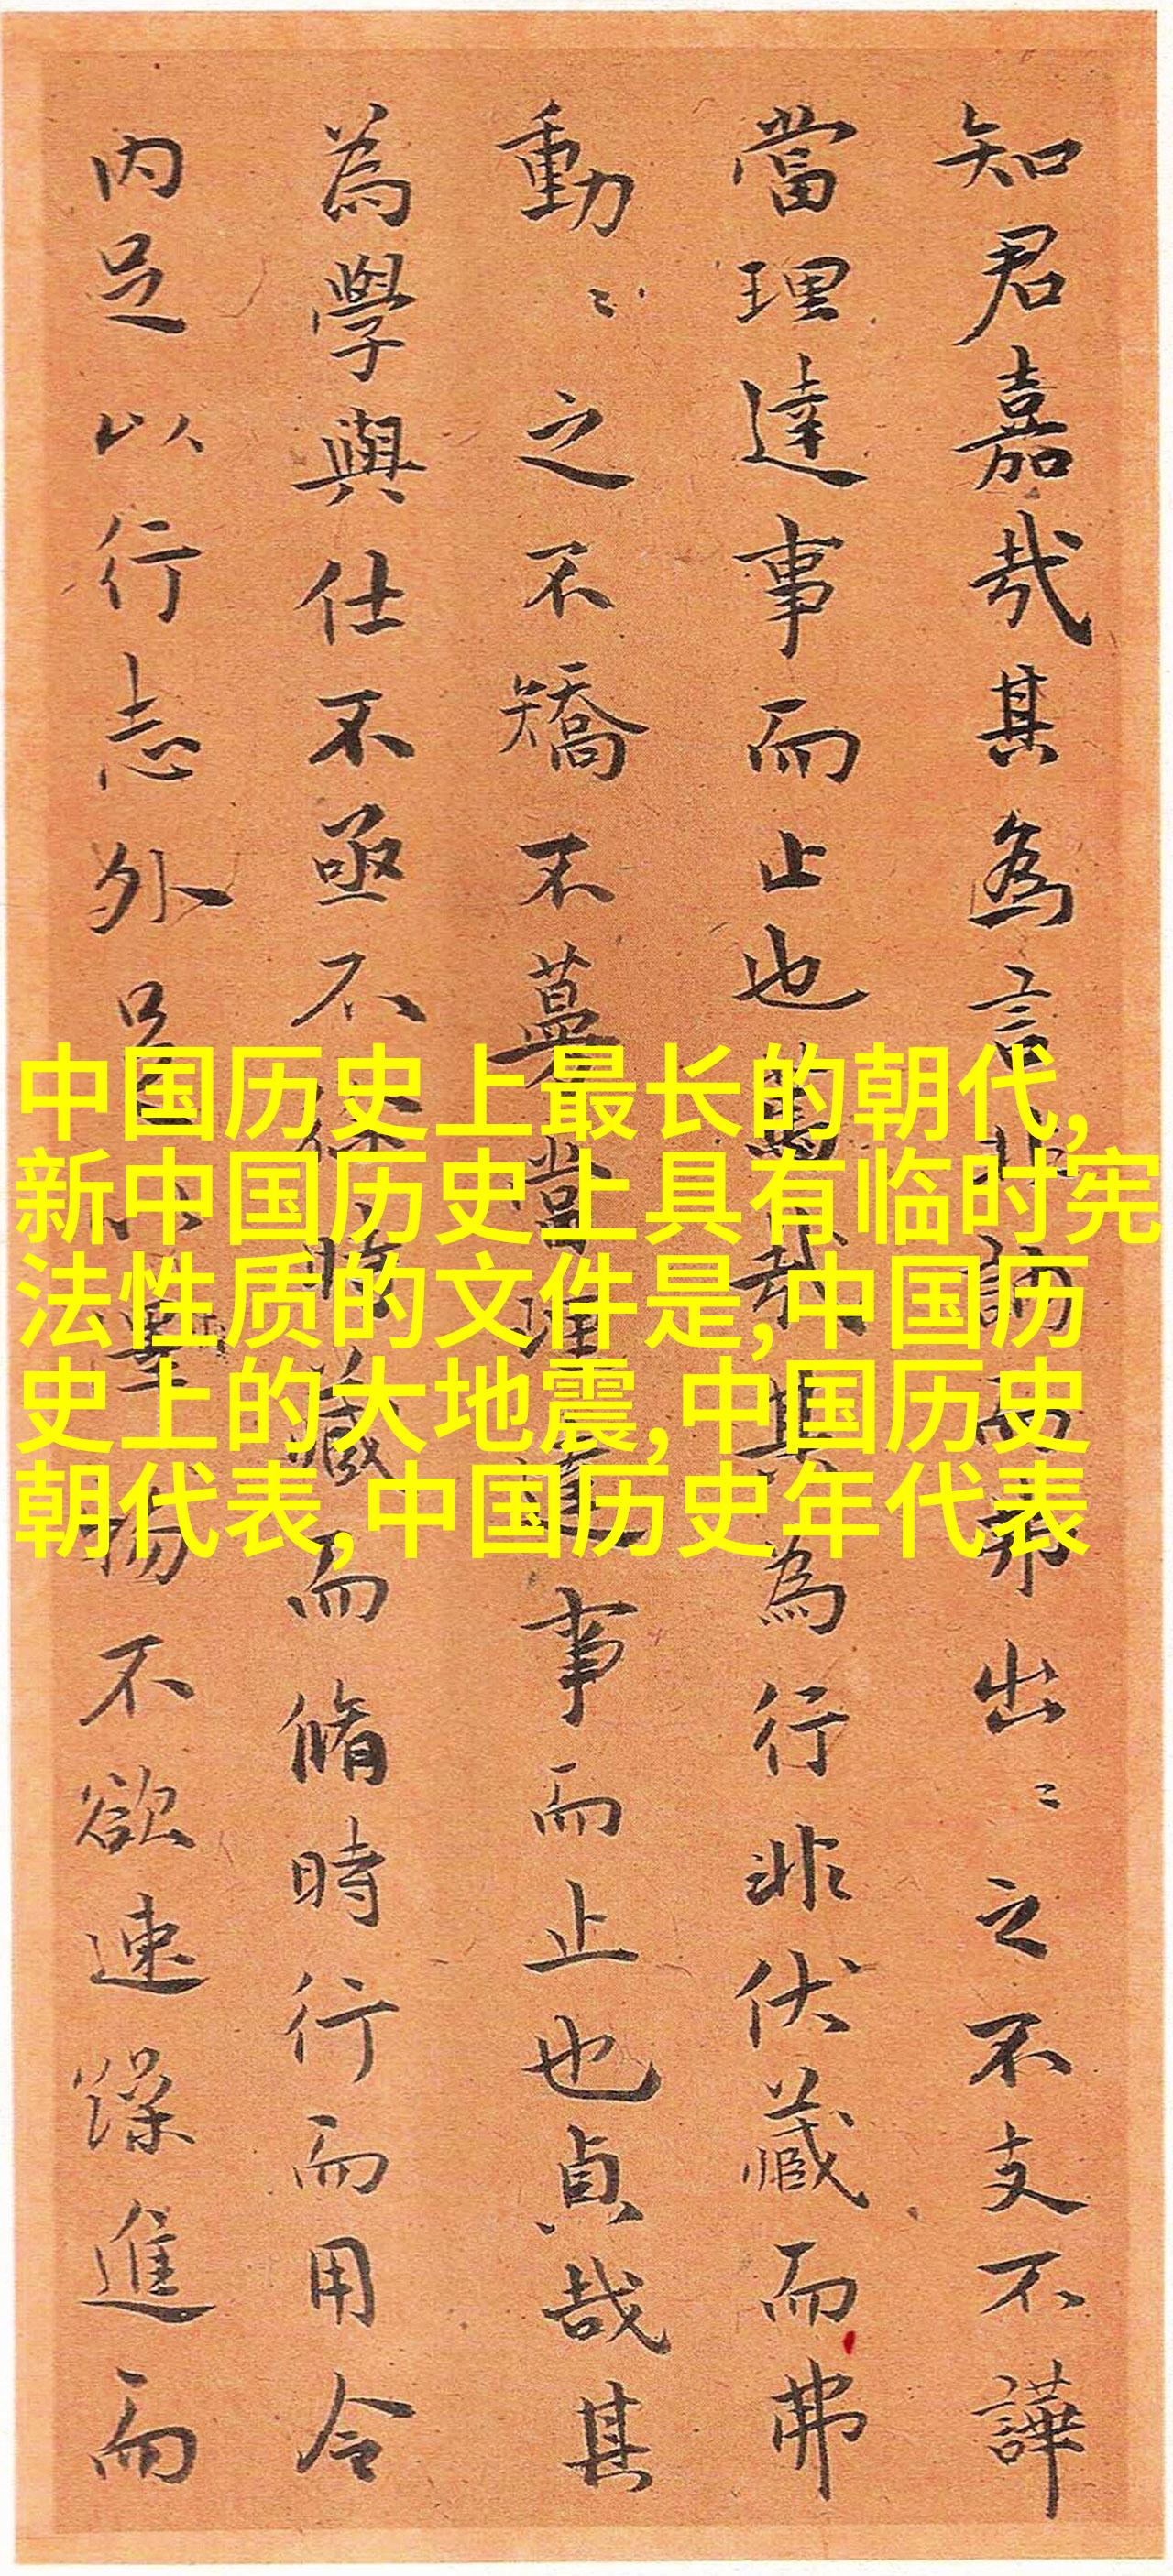 知君嘉哉其為言非訥而弗出〻之不支不譁
當理達事而止也篤哉其為行非伏藏而弗
動〻之不矯不蔓當理達事而止也貞哉其
為學與仕不亟不徐時藏而脩時行而用令
内足以行志外足以聲揚不欲速躁進而
中国历史上最长的朝代,
新中国历史上具有临时宪
法性质的文件是,中国历
史上的大地震,中国历史
朝代表,中国历史年代表